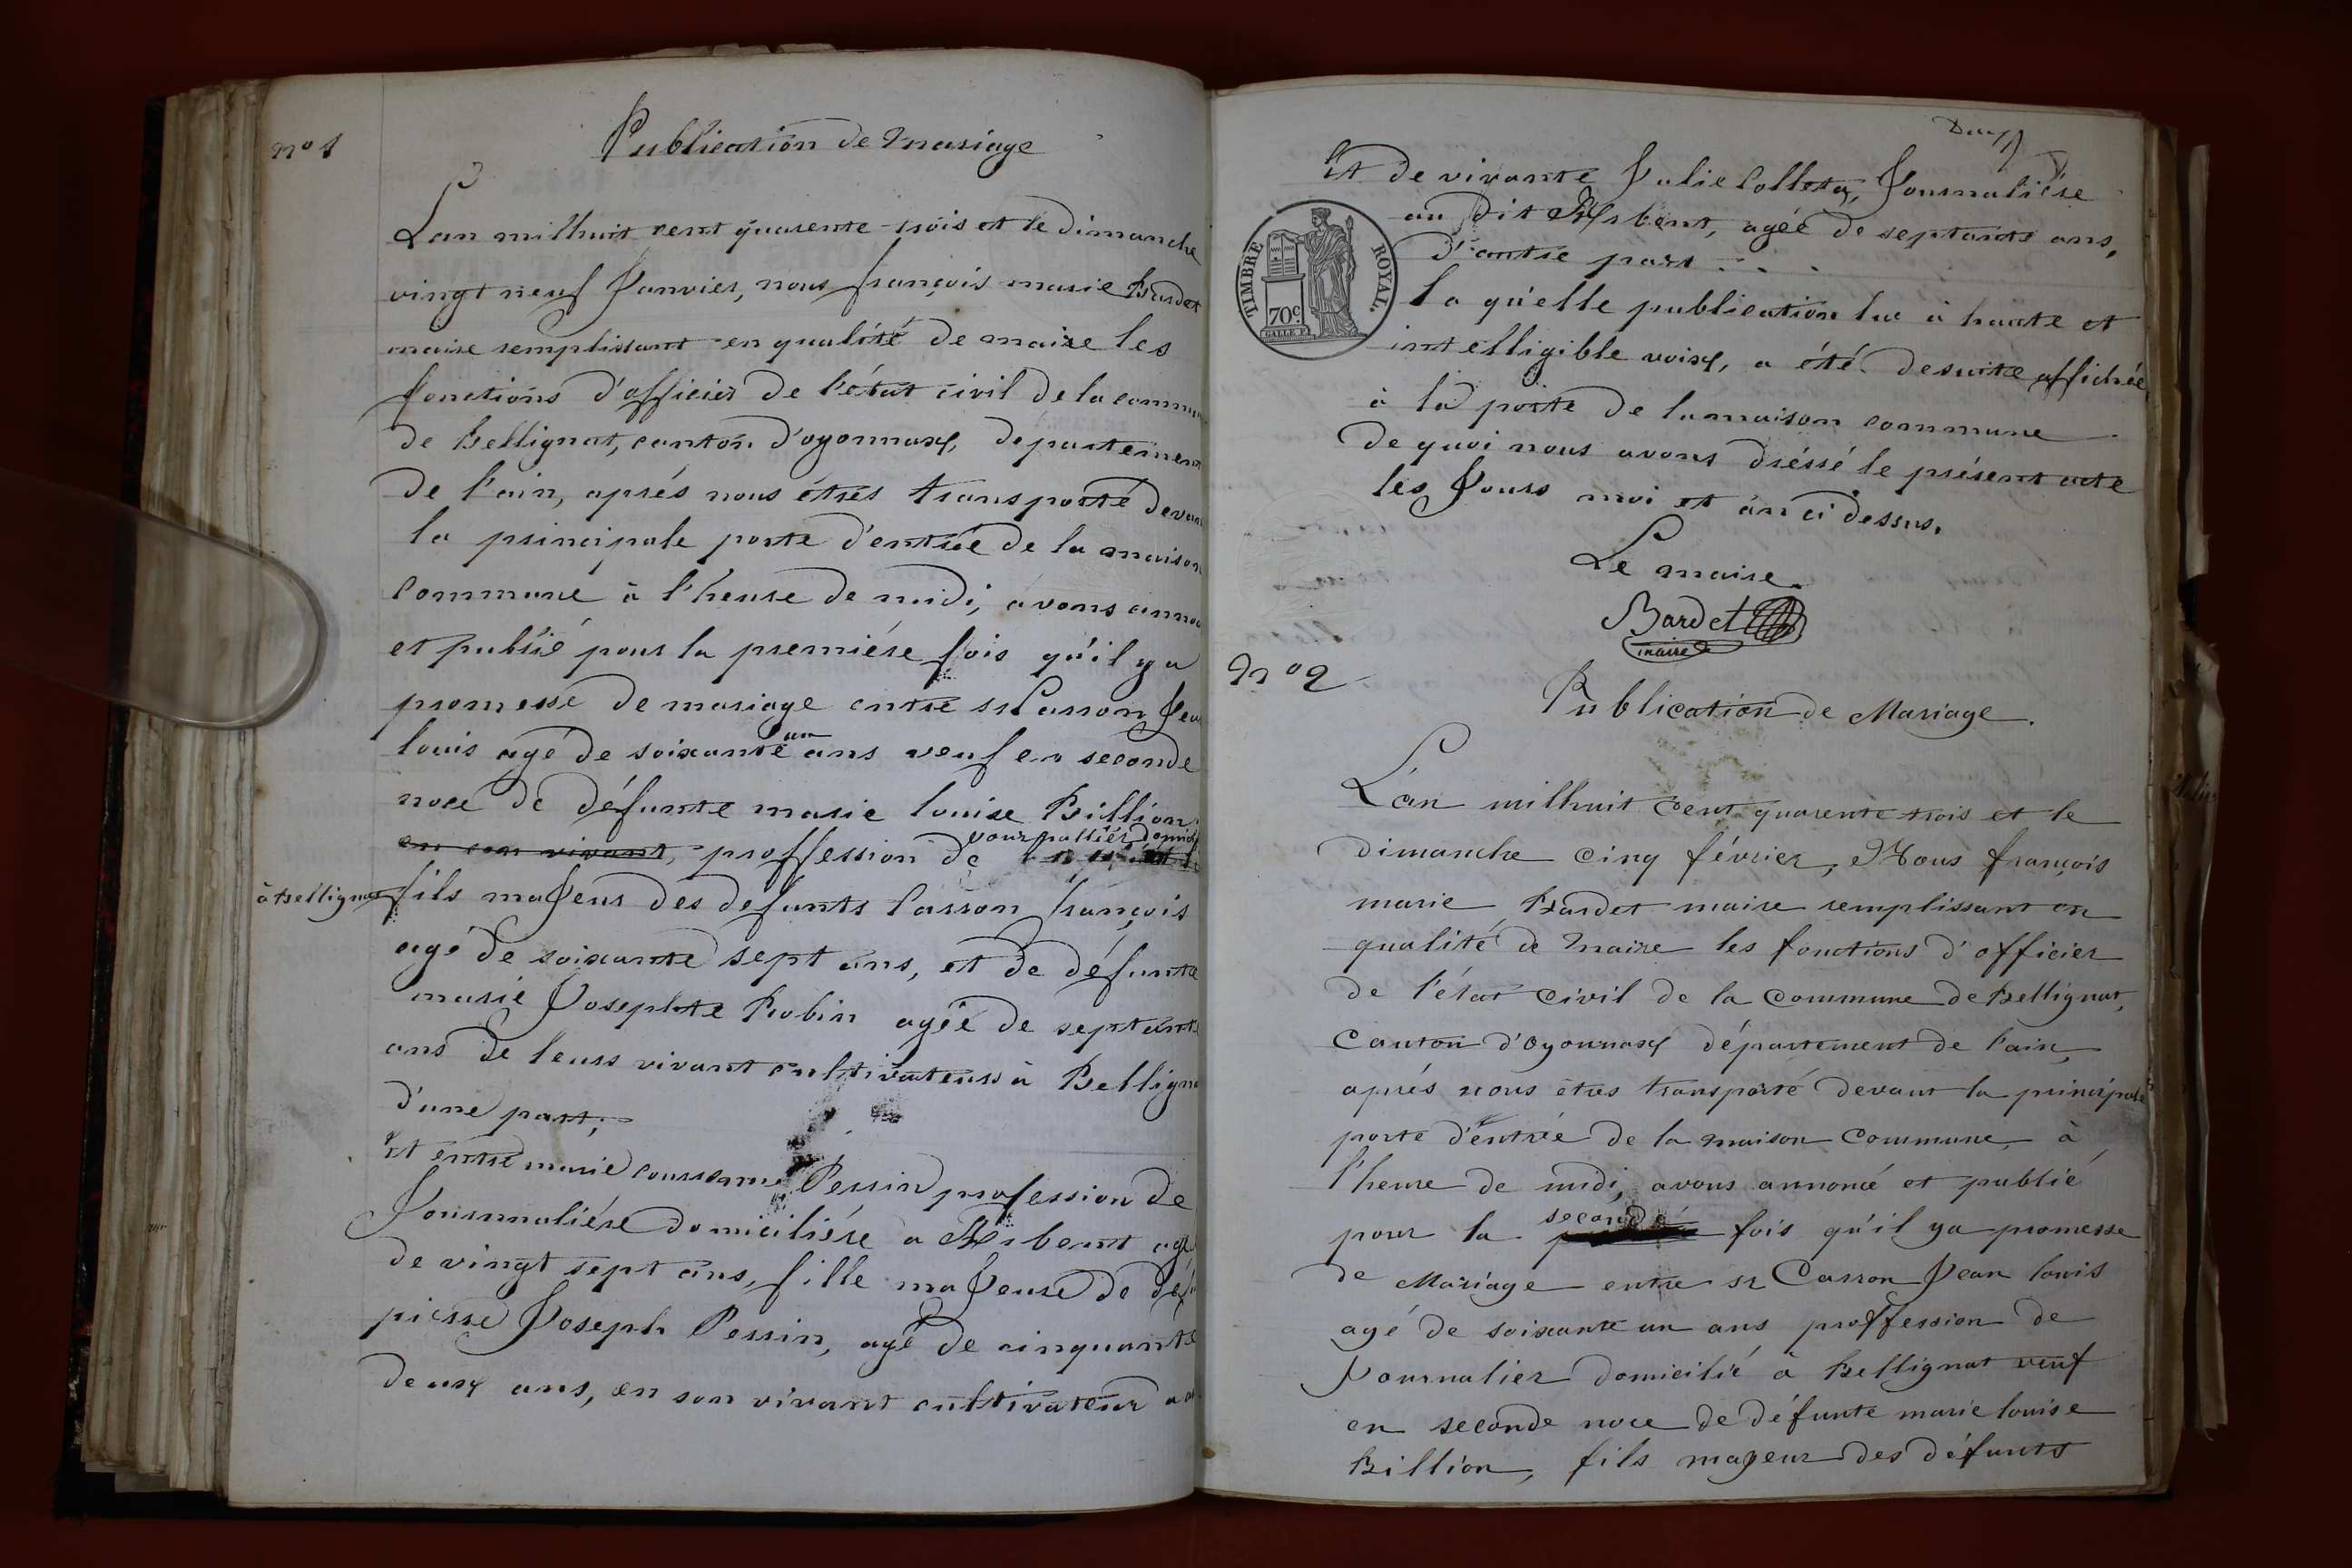 nº 1
Publication de mariage
Lan milhuit cent quarente trois et le dimanche
vingt neuf Janvier, nous françois marie Bardet
maire remplissant en qualité de maire les
fonctions d'officier de l'état civil de la commu
de Bellignat, canton d'oyonnax, departement
de l'ain, aprés nous étres transporté devan
la principale porte d'entrée de la maison
commune à l'heure de midi, avons anno
et publié pour la premiére fois qu'il y a
promesse de mariage entre sr Carron Jean
louis agé de soixante un ans veuf en seconde
noce de défunte marie louise Billion
en son vivant, proffession de journallier domici
à Bellignat fils majeur des defunts Carron françois
agé de soixante sept ans, et de défunte
marie Josephte Robin agée de septante
ans de leurs vivant cultivateurs à Bellign
d'une part;
Et entre marie Perrin profession de
Journaliére domiciliére a Arbent agé
de vingt sept ans, fille majeure de défu
pierre Joseph Perrin, agé de cinquante
deux ans, en son vivant cultivateur a
Deux
Et de vivante Julie Colletaz, Journaliére
au dit Arbent, agée de septante ans,
d'autre part . . .
TIMBRE ROYAL.
70c.
la qu'elle publication lue à haute et
intelligible voix, a été desuite affichée
à la porte de la maison commune
de quoi nous avons dréssé le présent acte
les Jours moi et an ci dessus.
Le maire
Bardet
maire
nº 2
Publication de Mariage.
L'an milhuit cent quarente trois et le
dimanche cinq février, Nous françois
marie Bardet maire remplissant en
qualité de maire les fonctions d'officier
de l'état civil de la commune de Bellignat,
Canton d'oyonnax département de l'ain,
aprés nous étres transporté devant la principale
porte d'entrée de la maison commune, à
l'heure de midi, avons annoncé et publié
pour la seconde fois qu'il ya promesse
de Mariage entre sr Carron Jean louis
agé de soixante un ans proffession de
Journalier domicilié à Bellignat veuf
en seconde noce de défunte marie louise
Billion, fils majeur des défunts